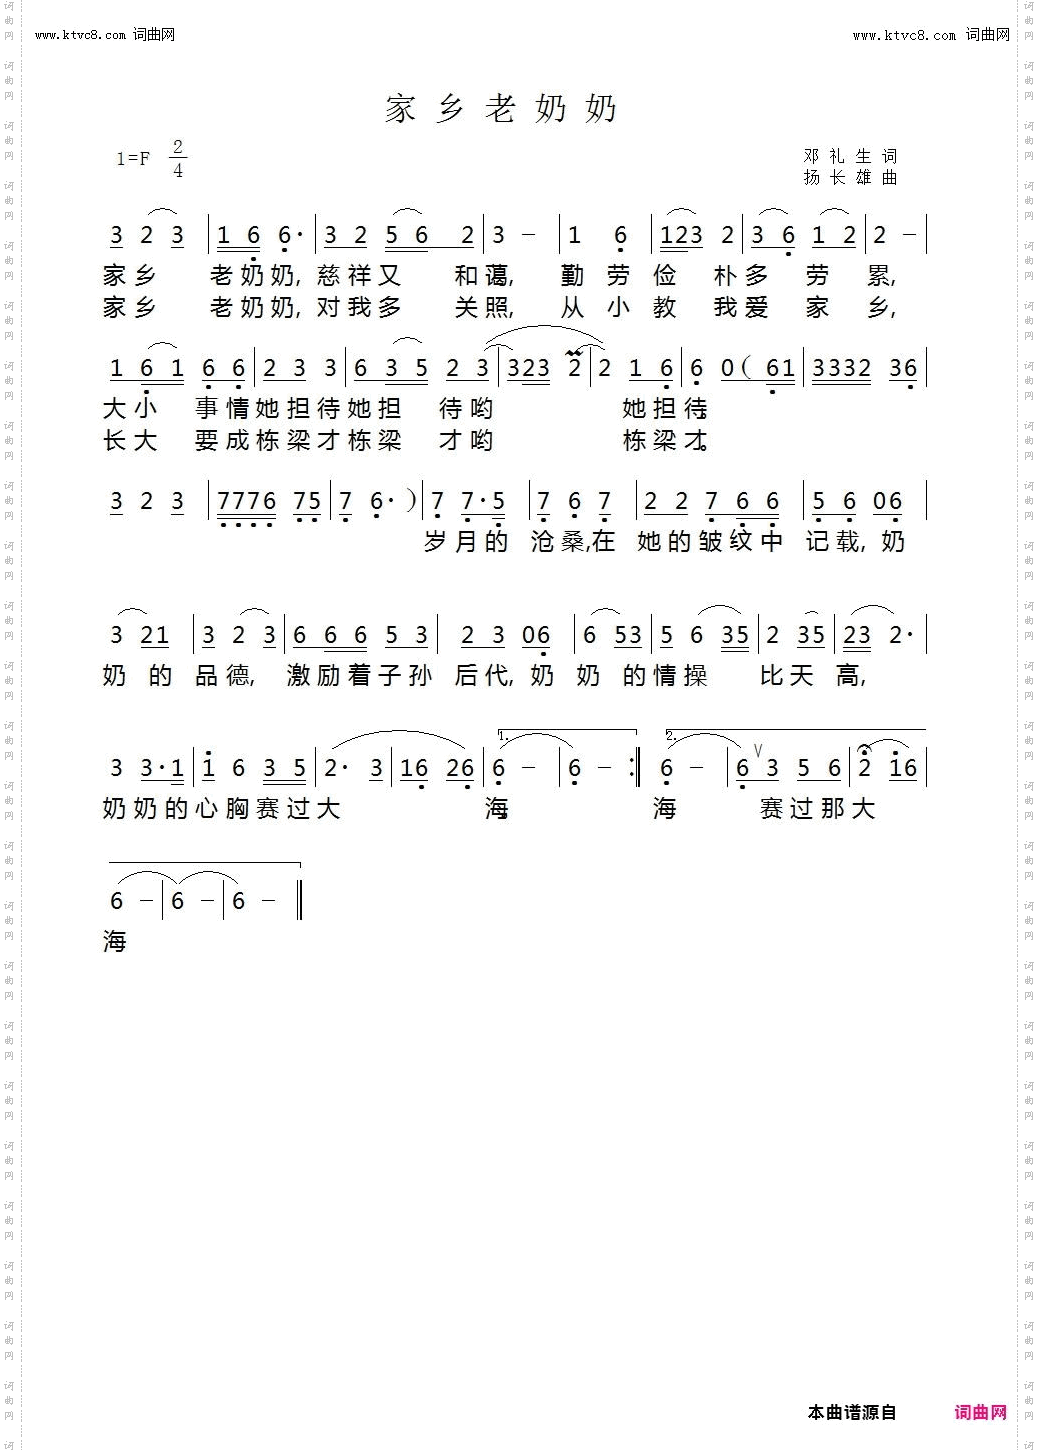 www.ktvc8.com 词曲网 www.ktvc8.com 词曲网
家乡老奶奶
1=F 2/4 邓礼生词
扬长雄曲
3 2 3 | 1 6 6· | 3 2 5 6 2 | 3 - | 1 6 | 123 2 | 3 6 1 2 | 2 - |
家乡 老奶奶, 慈祥又 和蔼, 勤劳俭朴多劳累,
家乡 老奶奶, 对我多 关照, 从小教我爱家乡,
1 6 1 6 6 | 2 3 3 | 6 3 5 2 3 | 323 2 | 2 1 6 | 6 0( 61 | 3332 36 |
大小 事情她担待她担 待哟 她担待。
长大 要成栋梁才栋梁 才哟 栋梁才。
3 2 3 | 7776 75 | 7 6· ) | 7 7·5 | 7 6 7 | 2 2 7 6 6 | 5 6 06 |
岁月的 沧桑,在 她的皱纹中 记载, 奶
3 21 | 3 2 3 | 6 6 6 5 3 | 2 3 06 | 6 53 | 5 6 35 | 2 35 | 23 2· |
奶 的 品德, 激励着子孙 后代, 奶 奶 的情操 比天 高,
3 3·1 | 1 6 3 5 | 2· 3 | 16 26 | 1. 6 - | 6 - :| 2. 6 - | 6 V 3 5 6 | 2 16 |
奶奶的心胸赛过大 海。 海 赛过那大
6 - | 6 - | 6 - ||
海
本曲谱源自 词曲网